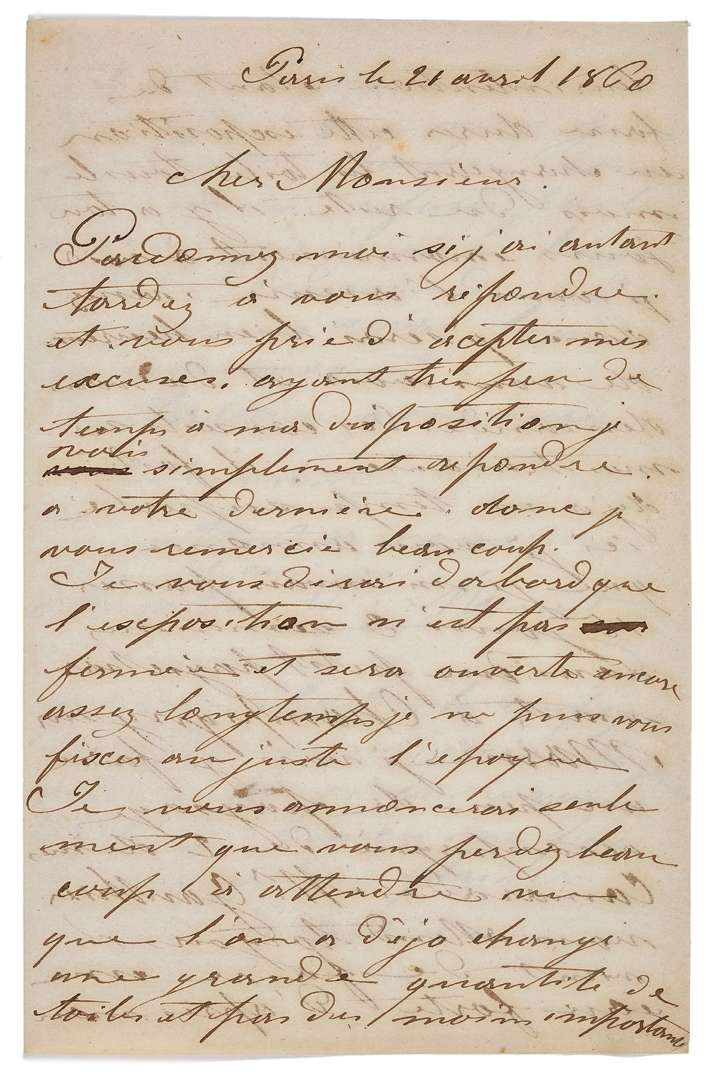 Paris le 21 avril 1860
cher Monsieur.
Pardonnez moi si j'ai autant
tardez à vous répondre.
et vous prie d'acepter mes
excuses. ayant tres peu de
temps a ma disposition je
vais simplement repondre.
a votre derniere. donc je
vous remercie beaucoup.
Je vous dirai d'abord que
l'exposition n'est pas
fermeie et sera ouverte encore
assez longtemps je ne puis vous
fixer au juste l'epoque
Je vous annoncerai seule
ment que vous perdez beau
coup à attendre vu
que l'on a déja changé
une grande quantité de
toiles et pas des moins importante